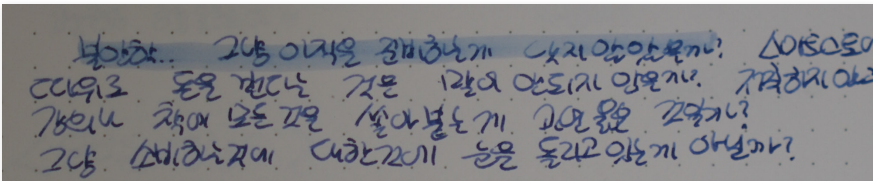 불안함.. 그냥 이직을 준비하는게 낫지 않았을까? 스마트스토어
따위로 돈을 번다는 것은 말이 안되지 않을까? 저축하지 않고
강의나 책에 모든 것을 쏟아붓는게 과연 옳은 것일까?
그냥 소비하는것에 대한것에 눈을 돌리고 있는게 아닐까?